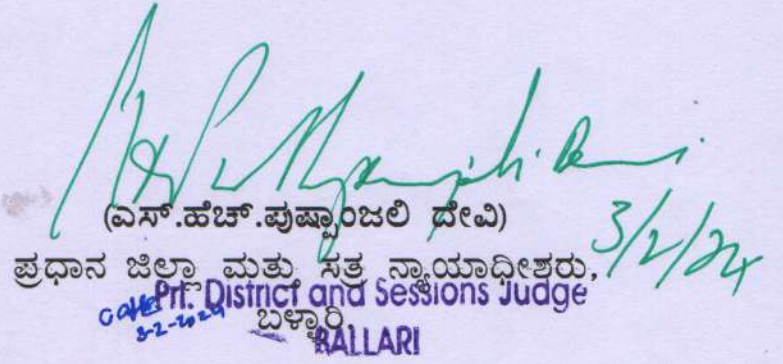 (ಎಸ್.ಹೆಚ್.ಪುಷ್ಪಾಂಜಲಿ ದೇವಿ)
3/2/24
ಪ್ರಧಾನ ಜಿಲ್ಲಾ ಮತ್ತು ಸತ್ರ ನ್ಯಾಯಾಧೀಶರು,
Prl. District and Sessions Judge
3-2-2024
ಬಳ್ಳಾರಿ
BALLARI